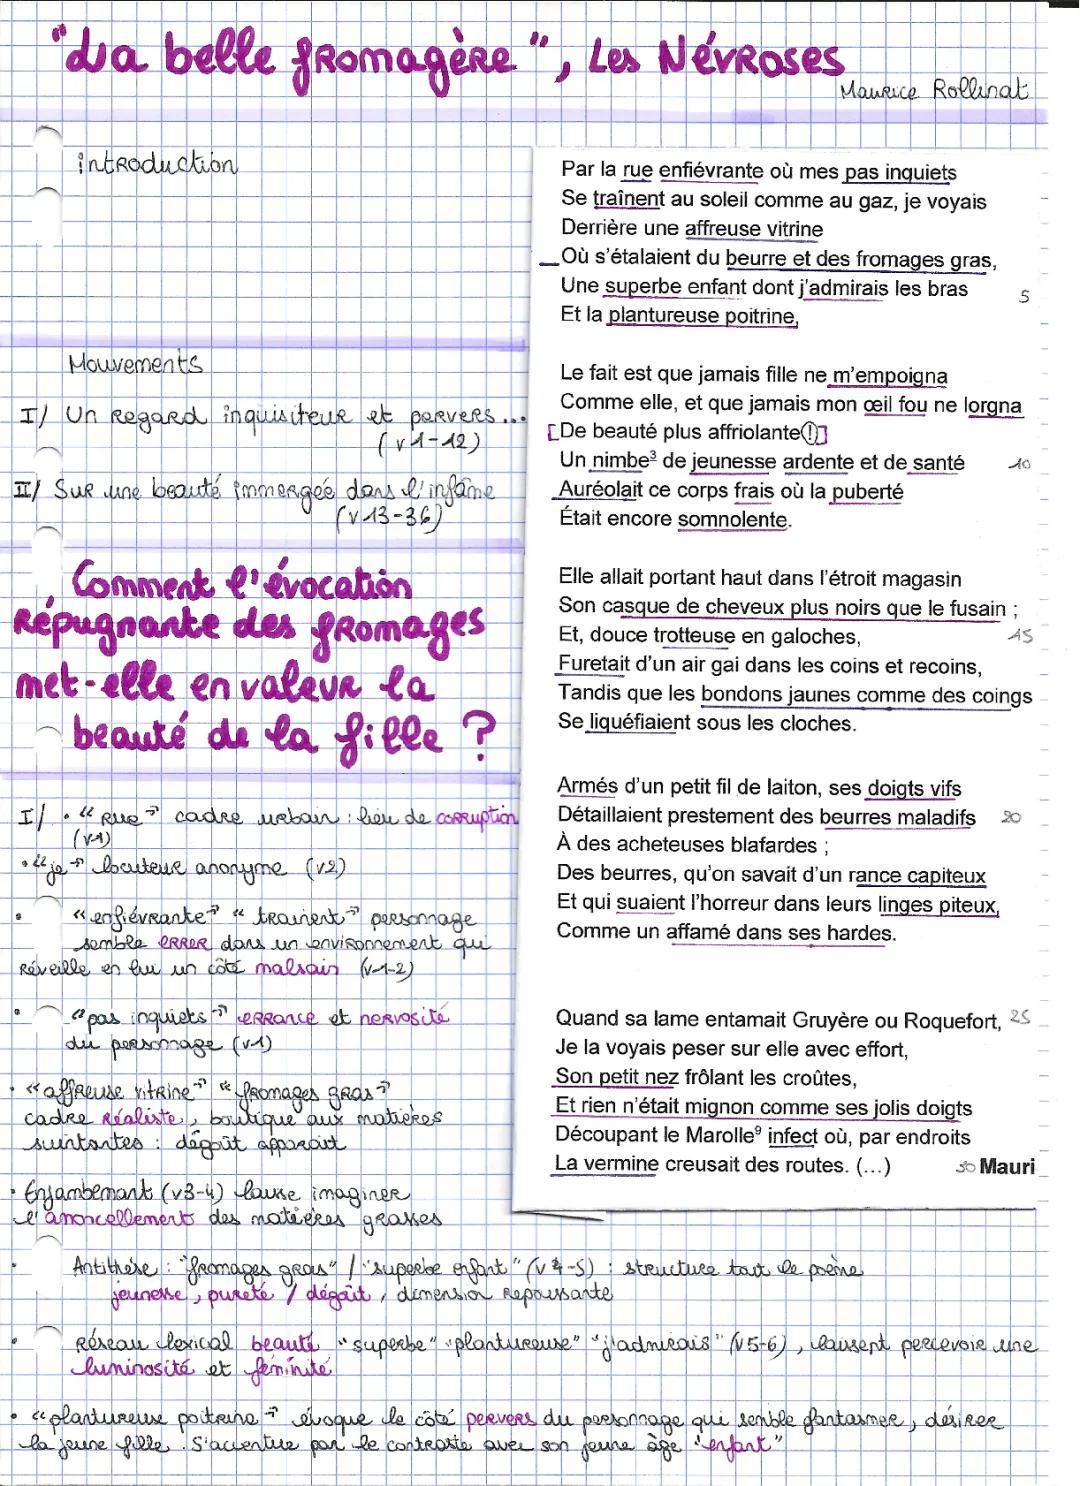 "La belle fromagère", Les Névroses
Maurice Rollinat
introduction
Mouvements
I/ Un regard inquisiteur et pervers...
(v1-12)
II/ Sur une beauté immergée dans l'infâme
(v13-36)
Comment l'évocation
répugnante des fromages
met-elle en valeur la
beauté de la fille ?
Par la rue enfiévrante où mes pas inquiets
Se traînent au soleil comme au gaz, je voyais
Derrière une affreuse vitrine
Où s'étalaient du beurre et des fromages gras,
Une superbe enfant dont j'admirais les bras 5
Et la plantureuse poitrine,
Le fait est que jamais fille ne m'empoigna
Comme elle, et que jamais mon œil fou ne lorgna
[De beauté plus affriolante(!)]
Un nimbe³ de jeunesse ardente et de santé 10
Auréolait ce corps frais où la puberté
Était encore somnolente.
Elle allait portant haut dans l'étroit magasin
Son casque de cheveux plus noirs que le fusain ;
Et, douce trotteuse en galoches, 15
Furetait d'un air gai dans les coins et recoins,
Tandis que les bondons jaunes comme des coings
Se liquéfiaient sous les cloches.
Armés d'un petit fil de laiton, ses doigts vifs
Détaillaient prestement des beurres maladifs 20
À des acheteuses blafardes ;
Des beurres, qu'on savait d'un rance capiteux
Et qui suaient l'horreur dans leurs linges piteux,
Comme un affamé dans ses hardes.
Quand sa lame entamait Gruyère ou Roquefort, 25
Je la voyais peser sur elle avec effort,
Son petit nez frôlant les croûtes,
Et rien n'était mignon comme ses jolis doigts
Découpant le Marolle⁹ infect où, par endroits
La vermine creusait des routes. (...) 30 Mauri
I/ • "rue" cadre urbain : lieu de corruption
(v1)
• "je" locuteur anonyme (v2)
• "enfiévrante" "trainent" personnage
semble errer dans un environnement qui
réveille en lui un côté malsain (v1-2)
• "pas inquiets" errance et nervosité
du personnage (v1)
• "affreuse vitrine" "fromages gras"
cadre réaliste, boutique aux matières
suintantes : dégoût apparait
• Enjambemant (v3-4) laisse imaginer
l'amoncellement des matières grasses
• Antithèse : "fromages gras" / "superbe enfant" (v4-5) : structure tout le poème
jeunesse, pureté / dégoût, dimension repoussante
• Réseau lexical beauté "superbe" "plantureuse" "j'admirais" (v5-6), laissent percevoir une
luminosité et féminité
• "plantureuse poitrine" évoque le côté pervers du personnage qui semble fantasmer, désirer
la jeune fille. S'accentue par le contraste avec son jeune âge "enfant"